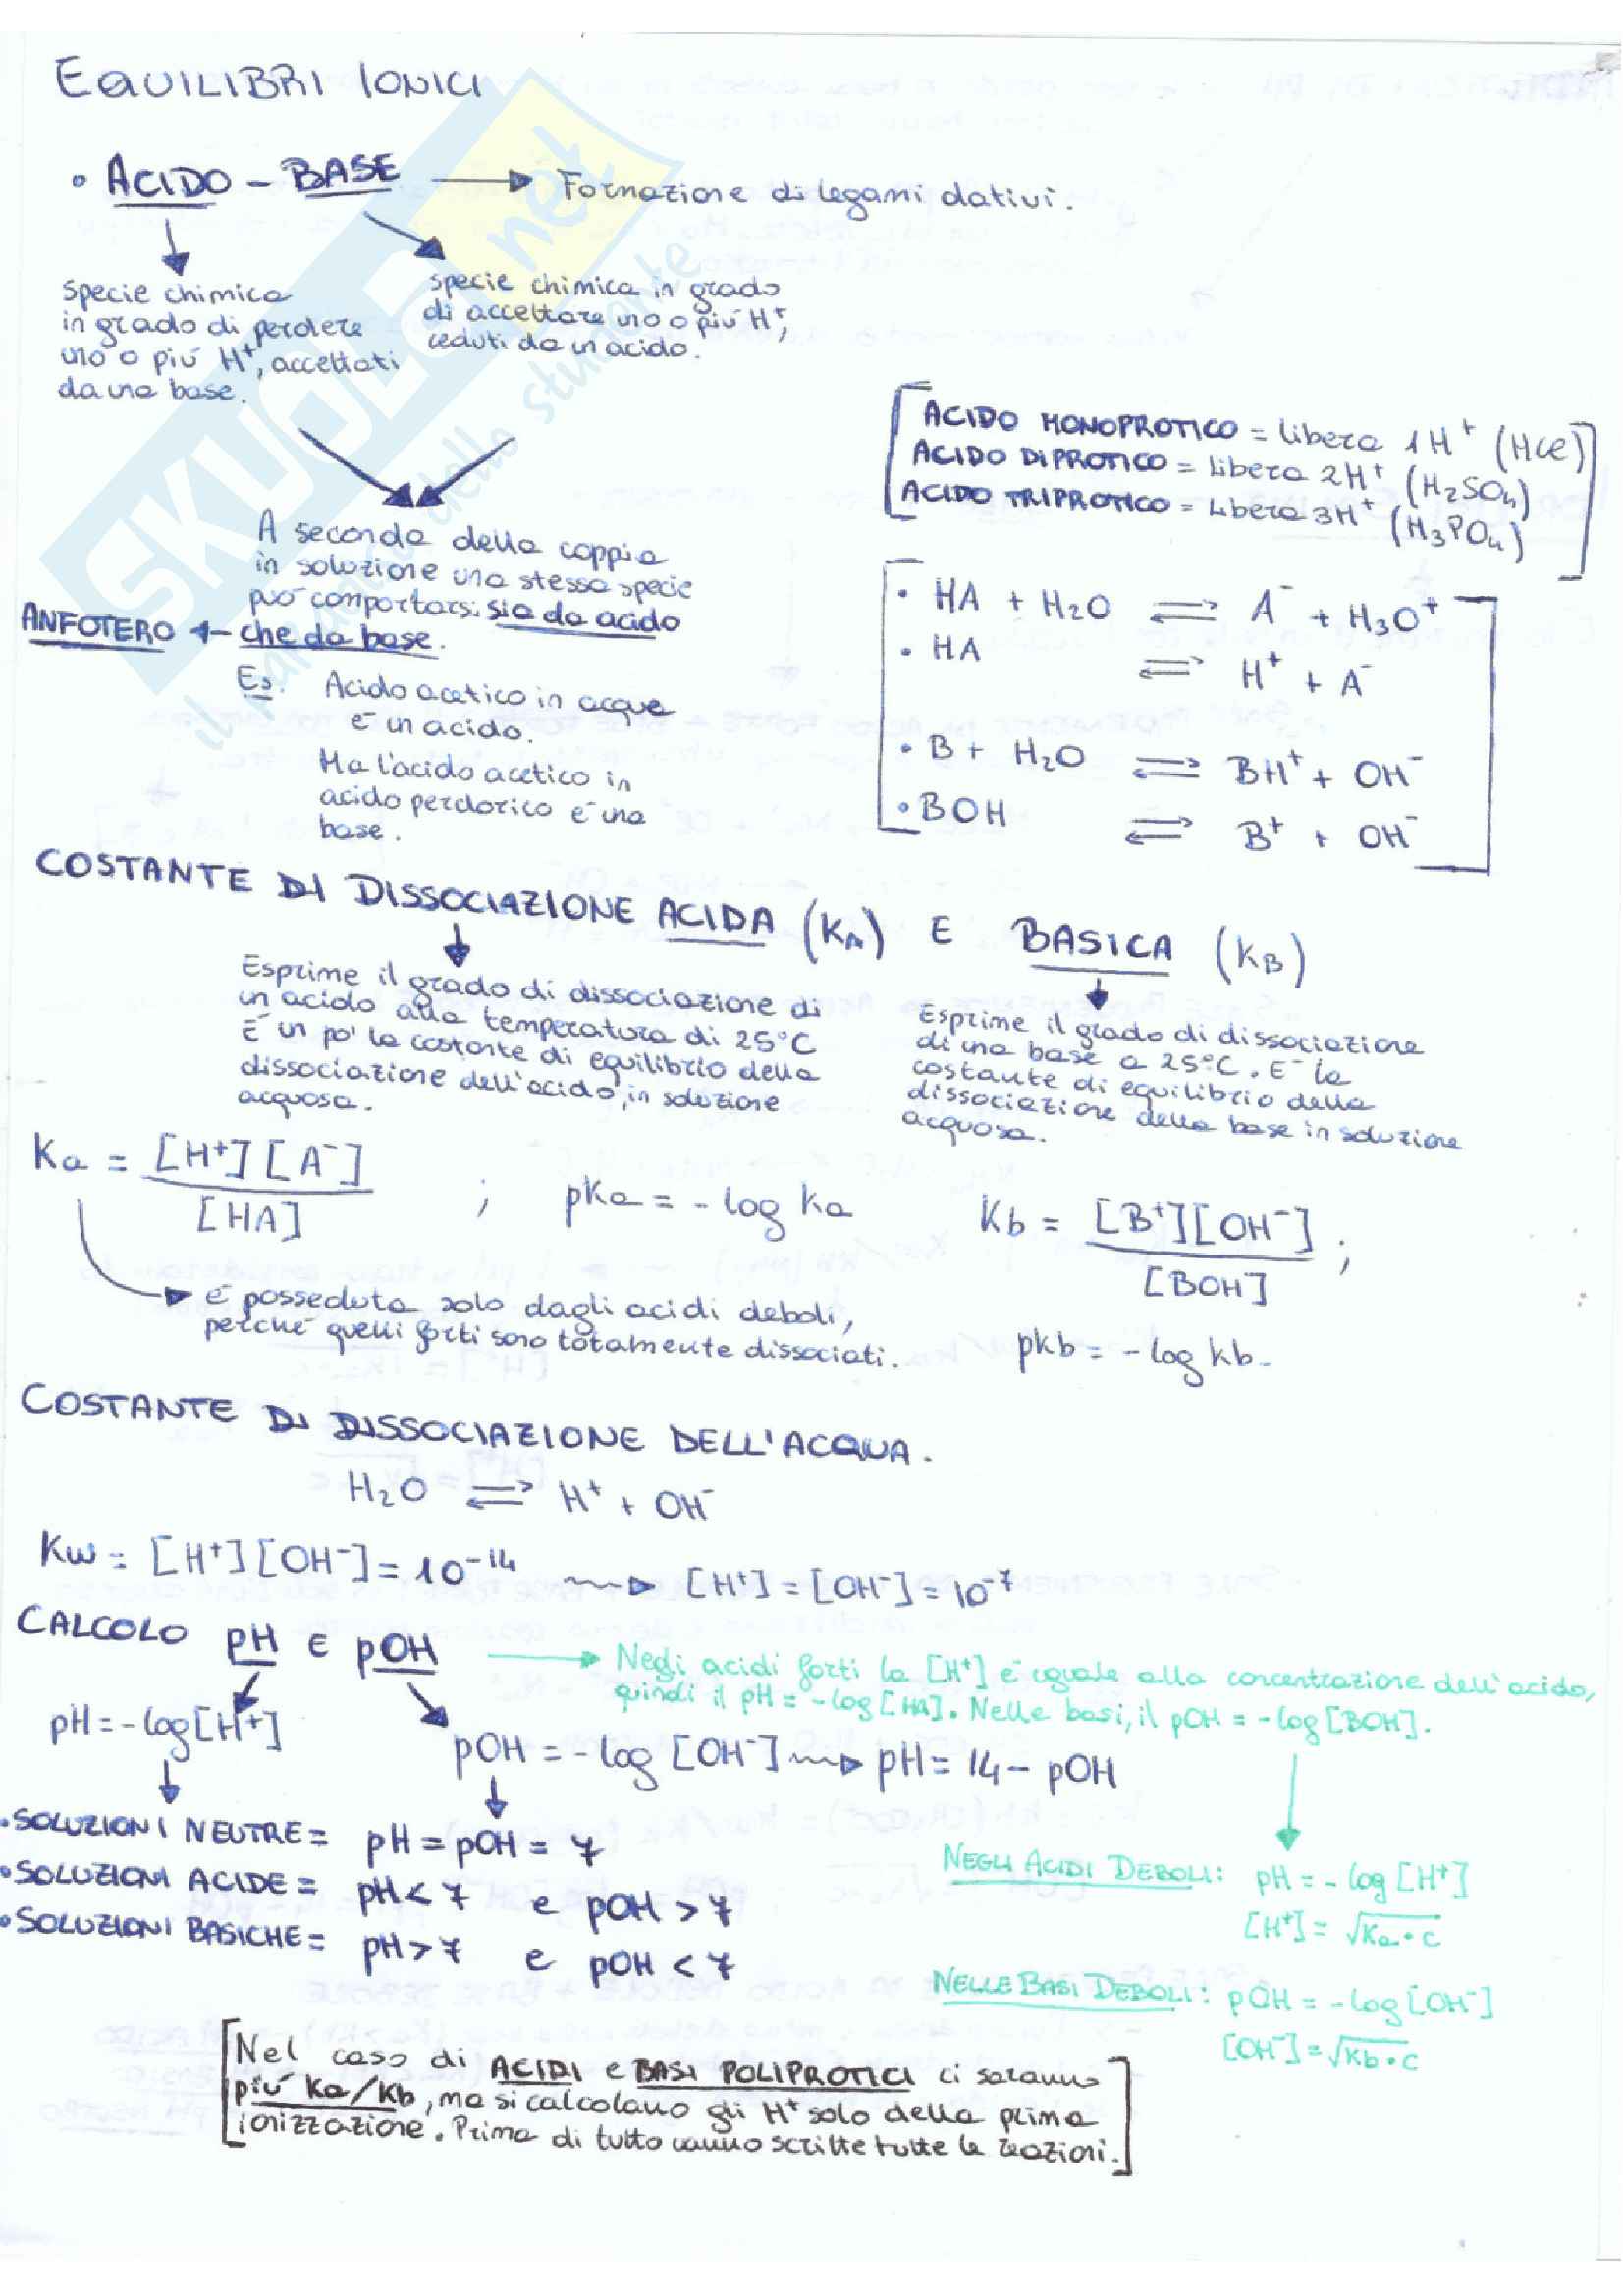 EQUILIBRI IONICI
• ACIDO - BASE → Formazione di legami dativi.
specie chimica
in grado di perdere
uno o più H⁺, accettati
da una base.
specie chimica in grado
di accettare uno o più H⁺,
ceduti da un acido.
ACIDO MONOPROTICO = libera 1H⁺ (HCl)
ACIDO DIPROTICO = libera 2H⁺ (H₂SO₄)
ACIDO TRIPROTICO = libera 3H⁺ (H₃PO₄)
A seconda della coppia
in soluzione una stessa specie
può comportarsi sia da acido
ANFOTERO ← che da base.
Es. Acido acetico in acqua
è un acido.
Ma l'acido acetico in
acido perclorico è una
base.
• HA + H₂O ⇌ A⁻ + H₃O⁺
• HA ⇌ H⁺ + A⁻
• B + H₂O ⇌ BH⁺ + OH⁻
• BOH ⇌ B⁺ + OH⁻
COSTANTE DI DISSOCIAZIONE ACIDA (KA) E BASICA (KB)
Esprime il grado di dissociazione di
un acido alla temperatura di 25°C
È un po' la costante di equilibrio della
dissociazione dell'acido, in soluzione
acquosa.
Esprime il grado di dissociazione
di una base a 25°C. È la
costante di equilibrio della
dissociazione della base in soluzione
acquosa.
Ka = [H⁺][A⁻] / [HA] ; pKa = - log ka
Kb = [B⁺][OH⁻] / [BOH] ;
è posseduta solo dagli acidi deboli,
perché quelli forti sono totalmente dissociati.
pkb = - log kb.
COSTANTE DI DISSOCIAZIONE DELL'ACQUA.
H₂O ⇌ H⁺ + OH⁻
Kw = [H⁺][OH⁻] = 10⁻¹⁴ → [H⁺] = [OH⁻] = 10⁻⁷
CALCOLO pH E pOH
→ Negli acidi forti la [H⁺] è uguale alla concentrazione dell'acido,
quindi il pH = - log [HA]. Nelle basi, il pOH = - log [BOH].
pH = - log [H⁺]
pOH = - log [OH⁻] → pH = 14 - pOH
• SOLUZIONI NEUTRE = pH = pOH = 7
• SOLUZIONI ACIDE = pH < 7 e pOH > 7
• SOLUZIONI BASICHE = pH > 7 e pOH < 7
NEGLI ACIDI DEBOLI: pH = - log [H⁺]
[H⁺] = √Ka · c
NELLE BASI DEBOLI: pOH = - log [OH⁻]
[OH⁻] = √Kb · c
[Nel caso di ACIDI e BASI POLIPROTICI ci saranno
più Ka/Kb, ma si calcolano gli H⁺ solo della prima
ionizzazione. Prima di tutto vanno scritte tutte le reazioni.]
SKUOLA.net
il paradiso dello studente